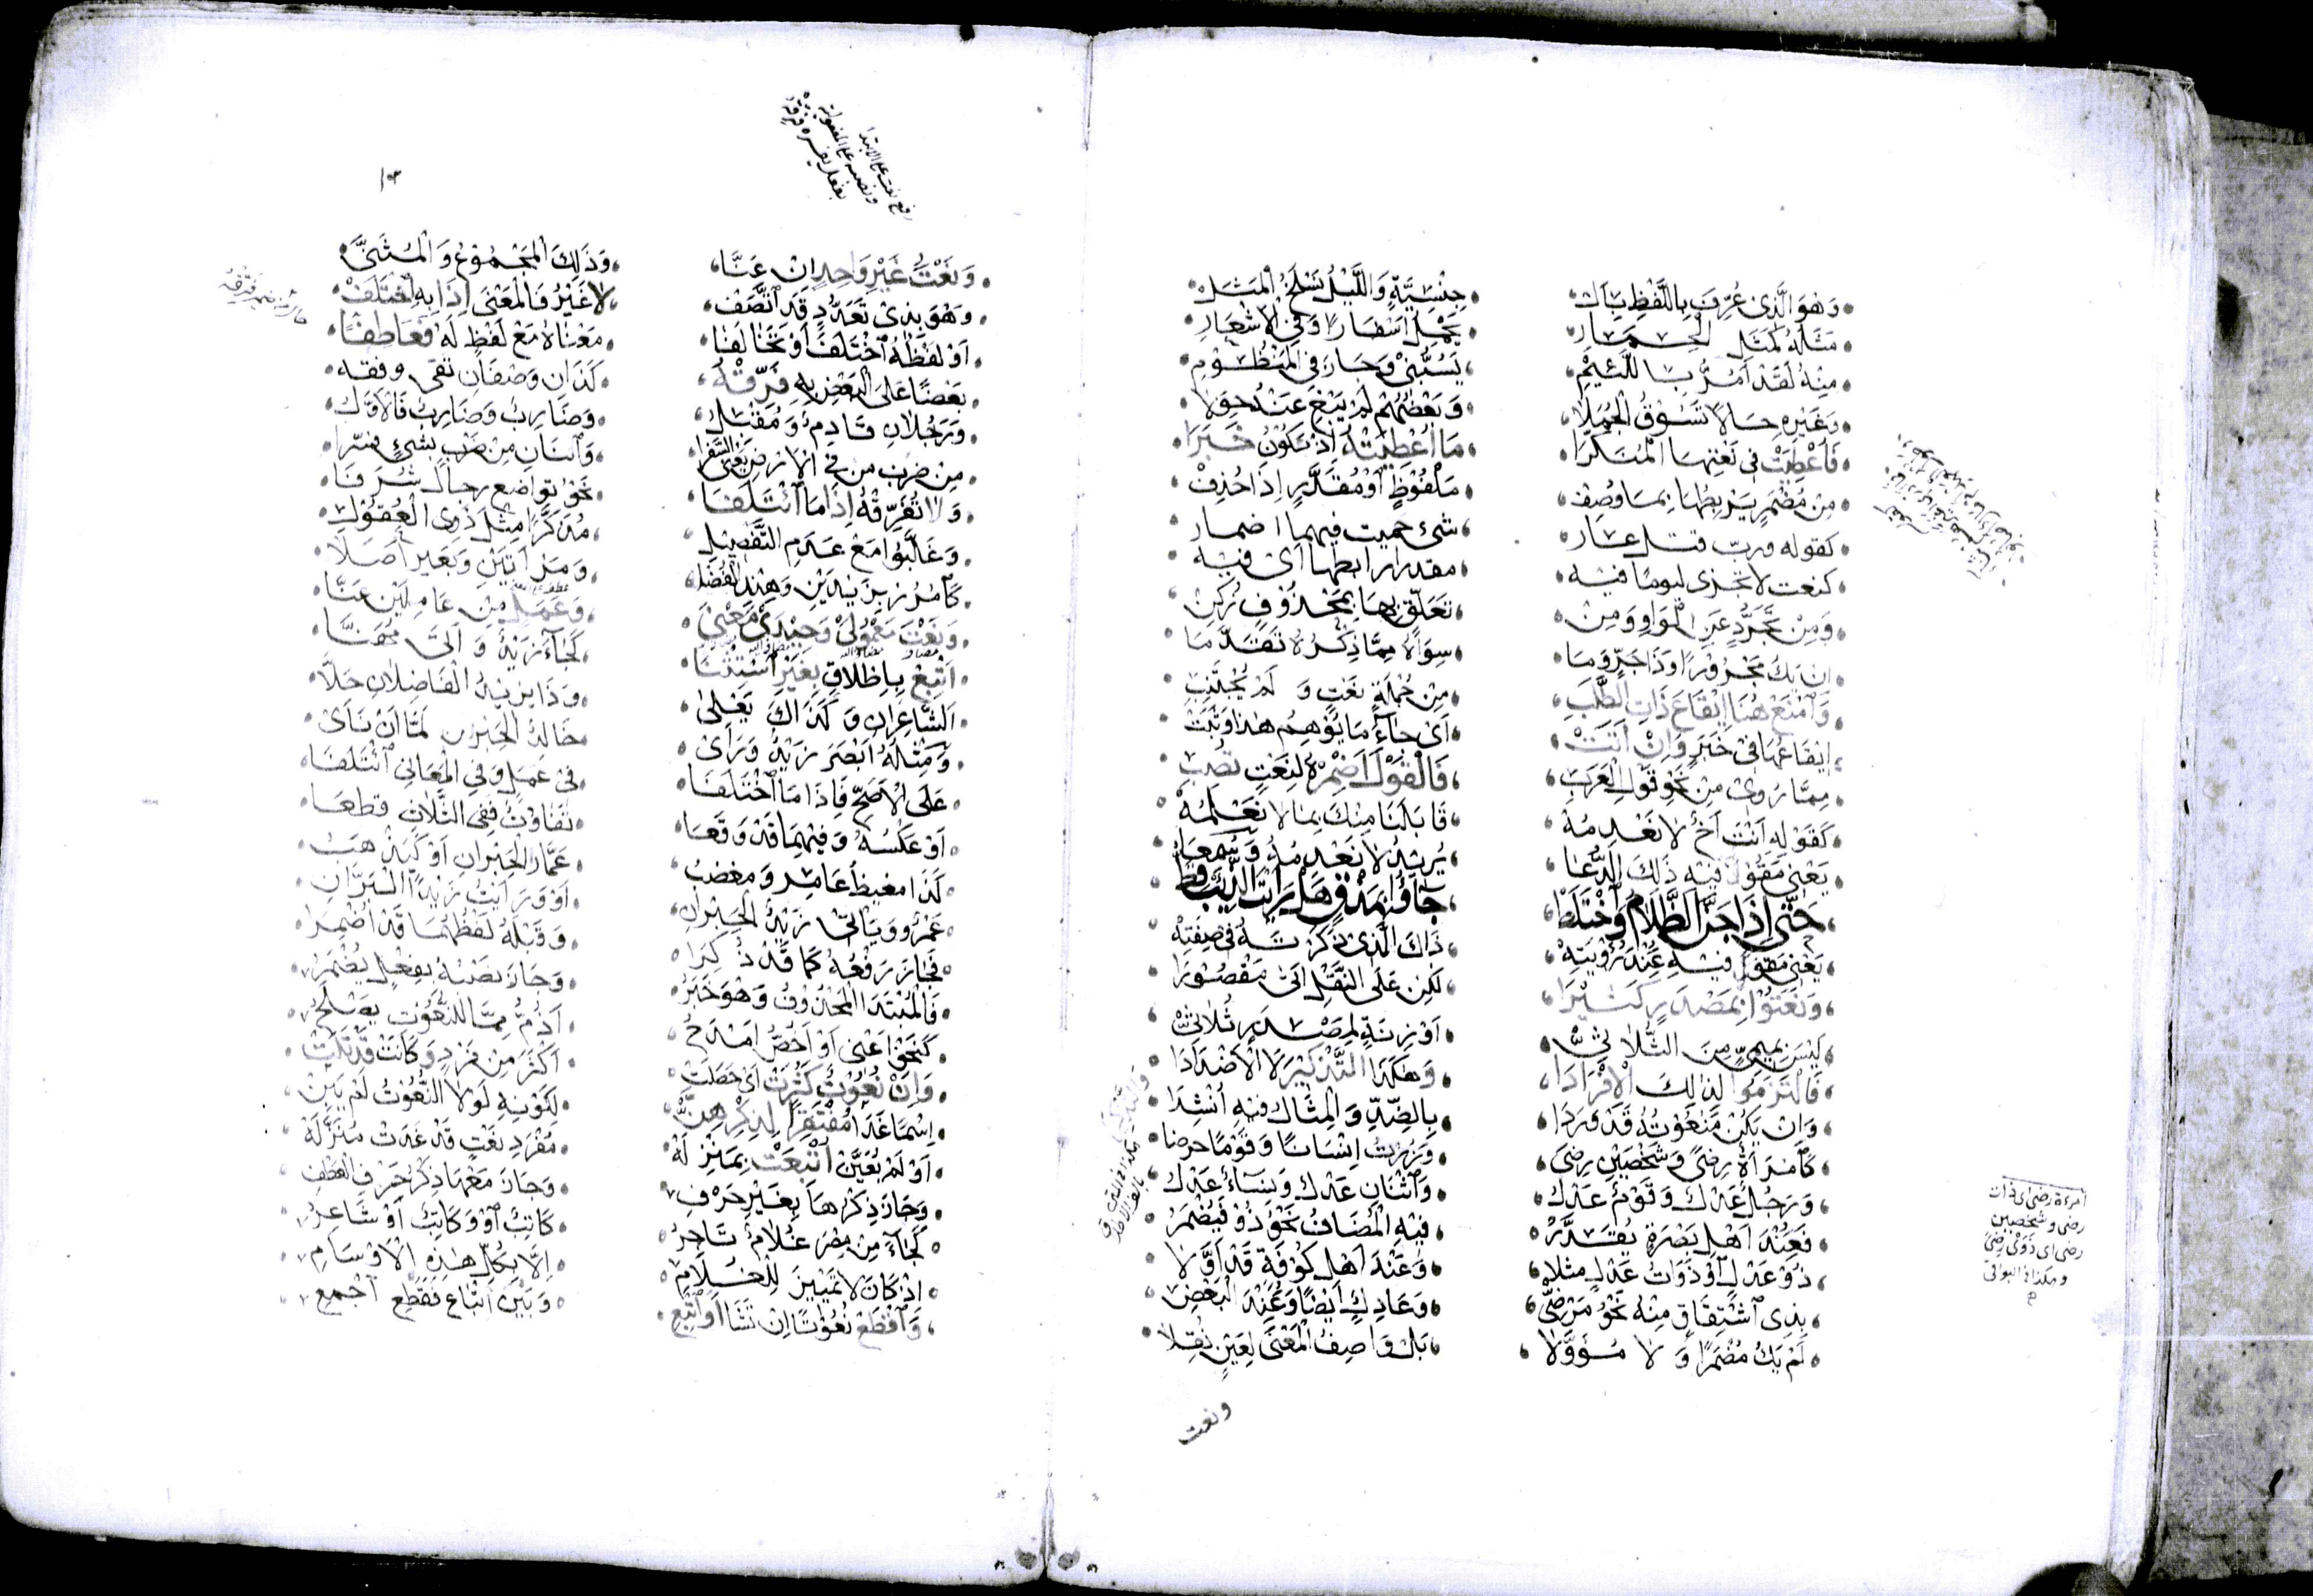 وَهْوَ الَّذِى عُرِّفَ بِاللَّفْظِ بِأَلْ جِنْسِيَّةٍ وَاللَّيْلُ نَسْلَخُ الْمَثَلْ
مَثَلُهُ كَمَثَلِ الْحِمَارِ يَحْمِلُ أَسْفَارًا وَفِى الْأَشْعَارِ
مِنْهُ لَقَدْ أَمُرُّ بِاللَّئِيمِ يَسُبُّنِى وَجَازَ فِى الْمَنْظُومِ
وَغَيْرِهِ حَالًا تَسُوقُ الْجُمَلَا وَبَعْضُهُمْ لَمْ يَبْغِ عَنْهُ حِوَلَا
فَأُعْطِيَتْ فِى نَعْتِهَا الْمُنَكَّرَا مَا أُعْطِيَتْهُ إِذْ تَكُونُ خَبَرَا
مِنْ مُضْمَرٍ يَرْبِطُهَا بِمَا وُصِفْ مَلْفُوظٍ أَوْ مُقَدَّرٍ إِذَا حُذِفْ
كقوله ورب قتل عار شىء حميت فيهما اضمار
كنعت لا تجزى ليوما فيه مقدرا رابطها اى فيه
وَمِنْ تَجَرُّدٍ عَنِ الْوَاوِ وَمِنْ تَعَلُّقٍ بِهَا بِمَحْذُوفٍ زُكِنْ
ان يك مَجْرُورًا وَذَا جَرٍّ وَمَا سِوَاهُ مِمَّا ذِكْرُهُ تَقَدَّمَا
وَامْنَعْ هُنَا إِيقَاعَ ذَاتِ الطَّلَبِ مِنْ جُمْلَةٍ نَعْتٍ وَ لَمْ يُجْتَنَبِ
إِيقَاعُهَا فِى خَبَرٍ وَإِنْ أَتَتْ أَىْ جَاءَ مَا يُوهِمُ هٰذَا وَثَبَتْ
مِمَّا رُوِىْ مِنْ نَحْوِ قَوْلِ الْعَرَبِ فَالْقَوْلَ أَضْمِرْهُ لِنَعْتٍ تُصِبِ
كَقَوْلِهِ أَنْتَ أَخٌ لَا نَعْدِمُهْ قَابَلَنَا مِنْكَ بِمَا لَا نَعْلَمُهْ
يَعْنِى مَقُولًا فِيهِ ذَلِكَ الدُّعَا يُرِيدُ لَا نَعْدِمُهُ وَسُمِعَا
حَتَّى إِذَا جَنَّ الظَّلَامُ وَاخْتَلَطْ جَاؤُا بِمَذْقٍ هَلْ رَأَيْتَ الذِّئْبَ قَطْ
يَعْنِى مَقُولٍ فِيهِ عِنْدَ رُؤْيَتِهْ ذَاكَ الَّذِى ذَكَرْتُهُ فِى صِفَتِهْ
وَنَعَتُوا بِمَصْدَرٍ كَثِيرَا لَكِنْ عَلَى النَّقْلِ أَتَى مَقْصُورَا
لَيْسَ بِمِيمِىٍّ مِنَ الثُّلَاثِىِّ أَوْ زِنَةٍ لِمَصْدَرٍ ثُلَاثِىِّ
فَالْتَزَمُوا لِذَلِكَ الْإِفْرَادَا وَهٰكَذَا التَّذْكِيرَ لَا الْأَضْدَادَا
وَإِنْ يَكُنْ مَنْعُوتُهُ قَدْ وَرَدَا بِالضِّدِّ وَالْمِثَالُ فِيهِ أُنْشِدَا
كَامْرَأَةٍ رِضًى وَشَخْصَيْنِ رِضَى وَزُرْتُ إِنْسَانًا وَقَوْمًا حرضا
وَرَجُلٌ عَدْلٌ وَقَوْمٌ عَدْلُ وَاثْنَانِ عَدْلٌ وَنِسَاءٌ عَدْلُ
فَعِنْدَ أَهْلِ بَصْرَةٍ يُقَدَّرُ فِيهِ الْمُضَافُ نَحْوُ ذُوْ فَيُضْمَرُ
ذُوْ عَدْلٍ أَوْ ذَوَاتُ عَدْلٍ مثلا وَعِنْدَ أَهْلِ كُوفَةٍ قَدْ أُوِّلَا
بِذِى اشْتِقَاقٍ مِنْهُ نَحْوُ مَرْضِى وَعَادِلٍ أَيْضًا وَعِنْدَ الْبَعْضِ
لَمْ يَكُ مُضْمَرًا وَ لَا مُؤَوَّلَا بَلْ وَاصِفُ الْمَعْنَى لِعَيْنٍ نُقِلَا
امرءة رضى اى ذات
رضى وشخصين
رضى اى ذَوَىْ رِضًى
وهكذا فى البواقى
ونعت
١٣
رفع نعت على الابتدا
ونصبه على المفعولية
بفعل يفسره فرقه
وَنَعْتُ غَيْرِ وَاحِدٍ إِنْ عَنَّا وَذَلِكَ الْمَجْمُوعُ وَالْمُثَنَّى
وَهْوَ بِذِىْ تَعَدُّدٍ قَدِ اتَّصَفْ لَا غَيْرُ فَالْمَعْنَى إِذَا بِهِ اخْتَلَفْ
أَوْ لَفْظُهُ اخْتَلَفَ أَوْ تَخَالَفَا مَعْنَاهُ مَعْ لَفْظٍ لَهُ فَعَاطِفَا
بَعْضًا عَلَى الْبَعْضِ بِهِ فَرِّقْهُ كَذَانِ وَصْفَانِ تقى وفقه
وَرَجُلَانِ قَادِمٌ وَمُقْتَلُ وَضَارِبٌ وَضَارِبٌ فَالْأَوَّلُ
مِنْ ضَرْبِ مَنْ فِى الْأَرْضِ يَعْنِى السَّفَرَا وَاثنان مِنْ ضَرْبٍ بِشَىْءٍ فسرا
وَلَا تُفَرِّقْهُ إِذَا مَا ائْتَلَفَا نَحْوُ تواضع رجال شُرَفَا
وَغَلَّبُوا مَعْ عَدَمِ التَّفْصِيلِ مُذَكَّرًا مِثْلَ ذَوِى الْعُقُولِ
كَامْرُرْ بِزَيْدَيْنِ وَهِنْدٍ الْفُضَلَا وَمَرْأَتَيْنِ وَبَعِيرٍ أَصَلَا
وَنَعْتَ مَعْمُولَىْ وَحِيدَىْ مَعْنَى وَعَمَلٍ مِنْ عَامِلَيْنِ عَنَّا
أَتْبِعْ بِإِطْلَاقٍ بِغَيْرِ اسْتِثْنَا كَجَاءَ زَيْدٌ وَ أَتَى مُهَنَّا
الشَّاعِرَانِ وَ كَذَاكَ يَعْلَى وَذَا يزيدُ الْفَاضِلَانِ حَلَّا
وَمِثْلُهُ أَبْصَرَ زَيْدٌ وَرَأَىْ خَالِدُ الْحَبْرَانِ لَمَّا أَنْ نَأَىْ
عَلَى الْأَصَحِّ فَإِذَا مَا اخْتَلَفَا فِى عَمَلٍ وَفِى الْمَعَانِى ائْتَلَفَا
أَوْ عَكْسُهُ وَفِيهِمَا قَدْ وَقَعَا تَفَاوُتٌ فَفِى الثَّلَاثِ قطعا
كَذَا مغيظٌ عَامِرٍ وَمغضبُ عَمَّارٍ الْحَبْرَانِ أَوْ كَيْدٌ هَبُ
عَمْرٌو وَيَأْتِى زَيْدٌ الْحَبْرَانِ أَوْ وَرَأَيْتُ زَيْدًا السَّرَّانِ
فَجَازَ رَفْعُهُ كَمَا قَدْ ذُكِرَا وَقَبْلَهُ لَفْظُهُمَا قَدْ أُضْمِرَا
فَالْمُبْتَدَا الْمَحْذُوفُ وَهْوَ خَبَرُ وَجَازَ نَصْبُهُ بِفِعْلٍ يُضْمَرُ
كَنَحْوِ أَعْنِى أَوْ أَخُصُّ امْدَحُ أَذُمُّ مِمَّا لِلنُّعُوتِ يَصْلُحُ
وَإِنْ نُعُوتٌ كَثُرَتْ أَىْ حَصَلَتْ أَكْثَرُ مِنْ فَرْدٍ وَكَانَتْ قَدْ تَلَتْ
إِسْمًا غَدَا مُفْتَقِرًا لِذِكْرِهِنّْ لِكَوْنِهِ لَوْلَا النُّعُوتُ لَمْ يَبِنْ
أَوْ لَمْ يُعَيَّنْ أُتْبِعَتْ بِمَنْزِلَهْ مُفْرَدِ نَعْتٍ قَدْ غَدَتْ مُنَزَّلَهْ
وَجَازَ ذِكْرُهَا بِغَيْرِ حَرْفِ وَجَازَ مَعْهَا ذِكْرُ حَرْفِ الْعَطْفِ
كَجَاءَ مِنْ مِصْرَ غُلَامٌ تَاجِرُ كَاتِبٌ أَوْ وَكَاتِبٌ أَوْ شَاعِرُ
إِذْ كَانَ لَا تَمْيِيزَ لِلْغُلَامِ إِلَّا بِكُلِّ هٰذِهِ الْأَوْسَامِ
وَاقْطَعْ نُعُوتًا إِنْ تَشَأْ أَوْ أَتْبِعِ وَبَيْنَ إِتْبَاعٍ فَقَطْعٍ اجْمَعِ